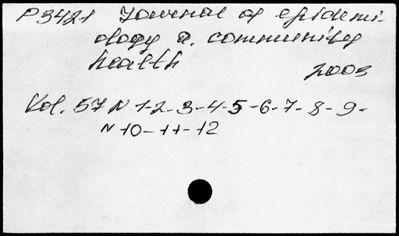 P3421 Journal of epidemi-
ology a. community
health
2003
Vol. 57 N 1-2-3-4-5-6-7-8-9-
N 10-11-12